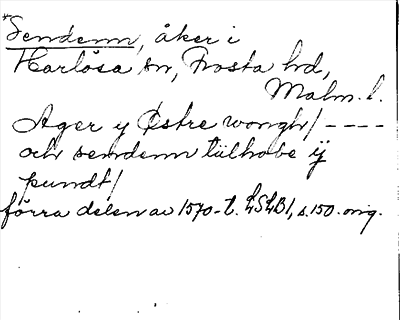 *Sendemn, åker i
Harlösa sn, Frosta hd,
Malm. l.
Ager y Østre wongh/ ----
och sendemn tiilhobe ij
pundt/
förra delen av 1570-t. LSLB1, s. 150. orig.